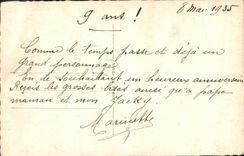 9 ans !
8 Mai 1935
Comme le temps passe et déjà un
grand personnage
En te souhaitant un heureux anniversaire
Reçois les grosses bises ainsi qu'a papa
maman et mon Jacky
Marinette